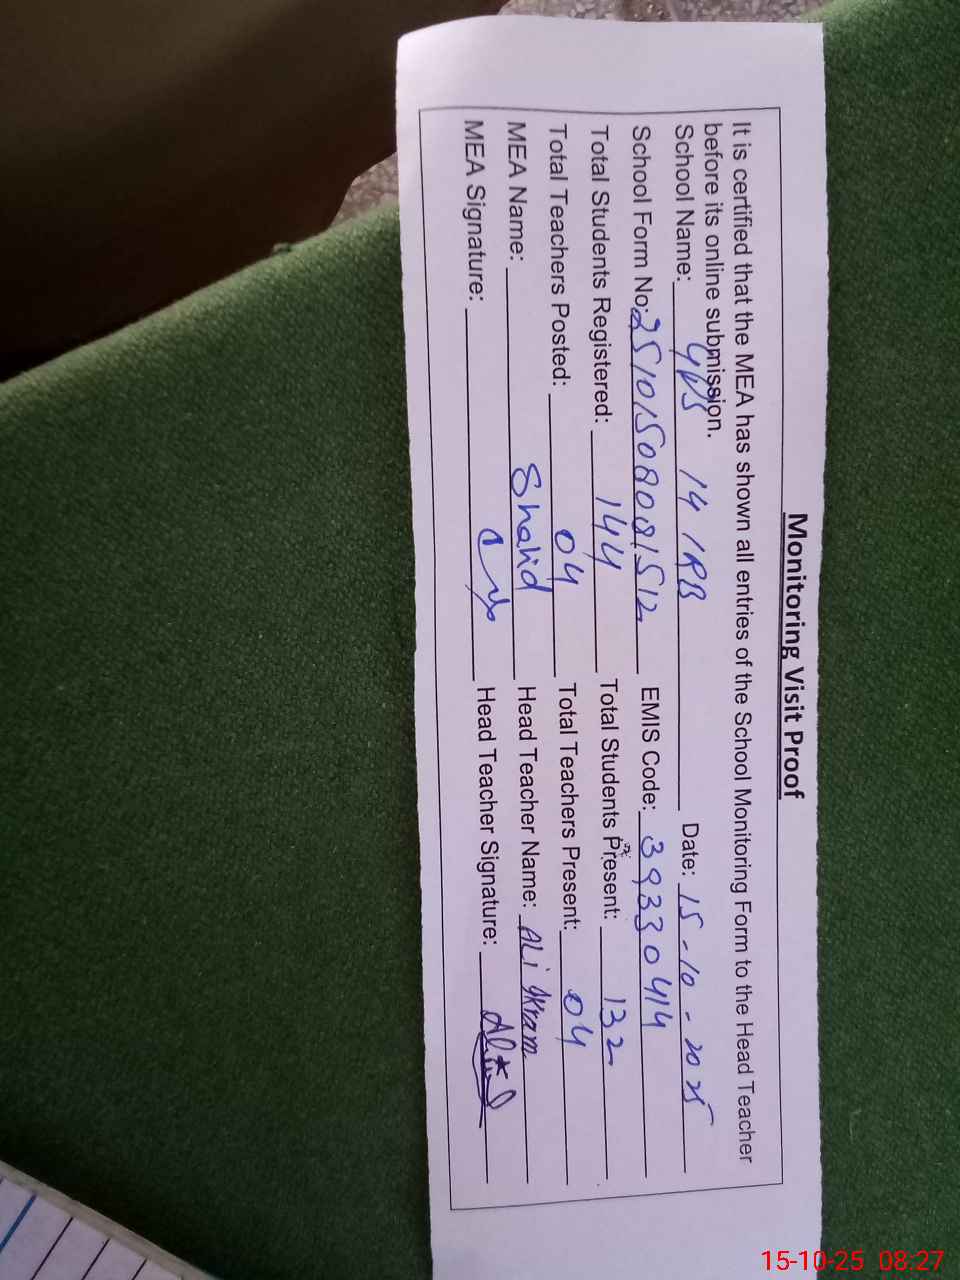 Monitoring Visit Proof
It is certified that the MEA has shown all entries of the School Monitoring Form to the Head Teacher
before its online submission.
School Name: GPS 14 1RB Date: 15-10-2025
School Form No: 25101508081512 EMIS Code: 39330414
Total Students Registered: 144 Total Students Present: 132
Total Teachers Posted: 04 Total Teachers Present: 04
MEA Name: Shahid Head Teacher Name: ALi Akram
MEA Signature: Head Teacher Signature:
15-10-25 08:27